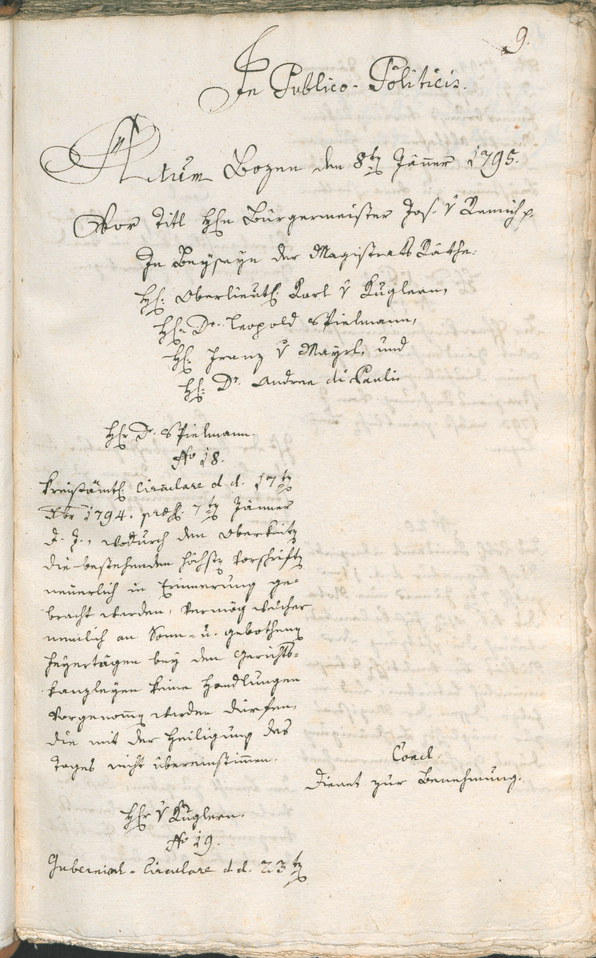 9.
In Publico-Politicis.
Actum Bozen den 8ten Jänner 1795.
Vor Titl Hhn Bürgermeister Jos. v Remich p
In Beyseyn der Magistrats Räthe.
Hh. Oberlieut. Karl v Kuglern,
Hh. Dr. Leopold Spielmann,
Hh. Franz v Mayrl, und
Hh. Dr. Andrea di Pauli
Hhr Dr. Spielmann.
No 18.
Kreisämtl Circulare d. d. 17ten
Xbr 1794. præs. 7ten Jänner
d. J., wodurch den Oberkeiten
die bestehenden höchsten Vorschriften
neuerlich in Erinnerung ge-
bracht werden, vermög welcher
nemlich an Sonn- u. gebothenen
Feyertägen bey den Gerichts-
kanzleyen keine Handlungen
vorgenommen werden dürfen,
die mit der Heiligung des
Tages nicht übereinstimmen.
Concl.
Dienet zur Benehmung.
Hhr v Kuglern.
No 19.
Gubernial-Circulare d d. 23ten